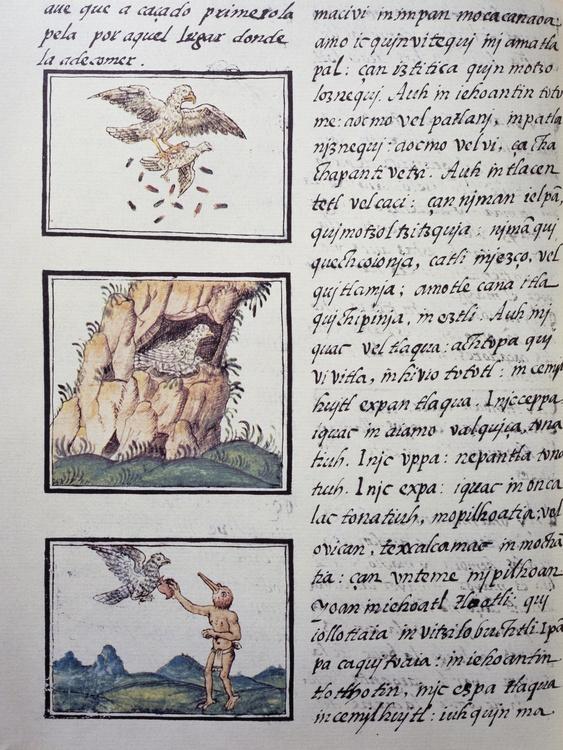 aue que a caçado primero la
pela por aquel lugar donde
la ade comer.
macivi in mpan mocacanaoa
amo ic quinvitequi in j amatla
pal: çan iztitica quin motzo
loznequj. Auh in iehoantin toto
me: aocmo vel patlanj, in patla
njznequj: aocmo vel vi, ça cha
chapantivetzi. Auh in tlacen
tetl vel caci: çan njman ielpã,
quimotzoltzitzquja: njmã qui
quechcoionja, catli injezço, vel
quitlamja; amotle cana itla
quichipinja, in eztli. Auh inj
quac vel tlaqua: achtopa qui
vivitla, in hivio tototl: in cemjl
hujtl expan tlaqua. Injc ceppa
iquac in aiamo valquiça, tona
tiuh. Injc vppa: nepantla tona
tiuh. Injc expa: iquac in onca
lac tonatiuh, mopilhoatia, vel
ovican, texcalcamac in mochã
tia: çan vnteme in pilhoan
Yoan in iehoatl tlotli: qui
iollotiaia in vitzilobuchtli. Ipã
pa caquitvaia: in iehoantin
tlothotin, njc expa tlaqua
in cemjlhujtl: iuhquin ma